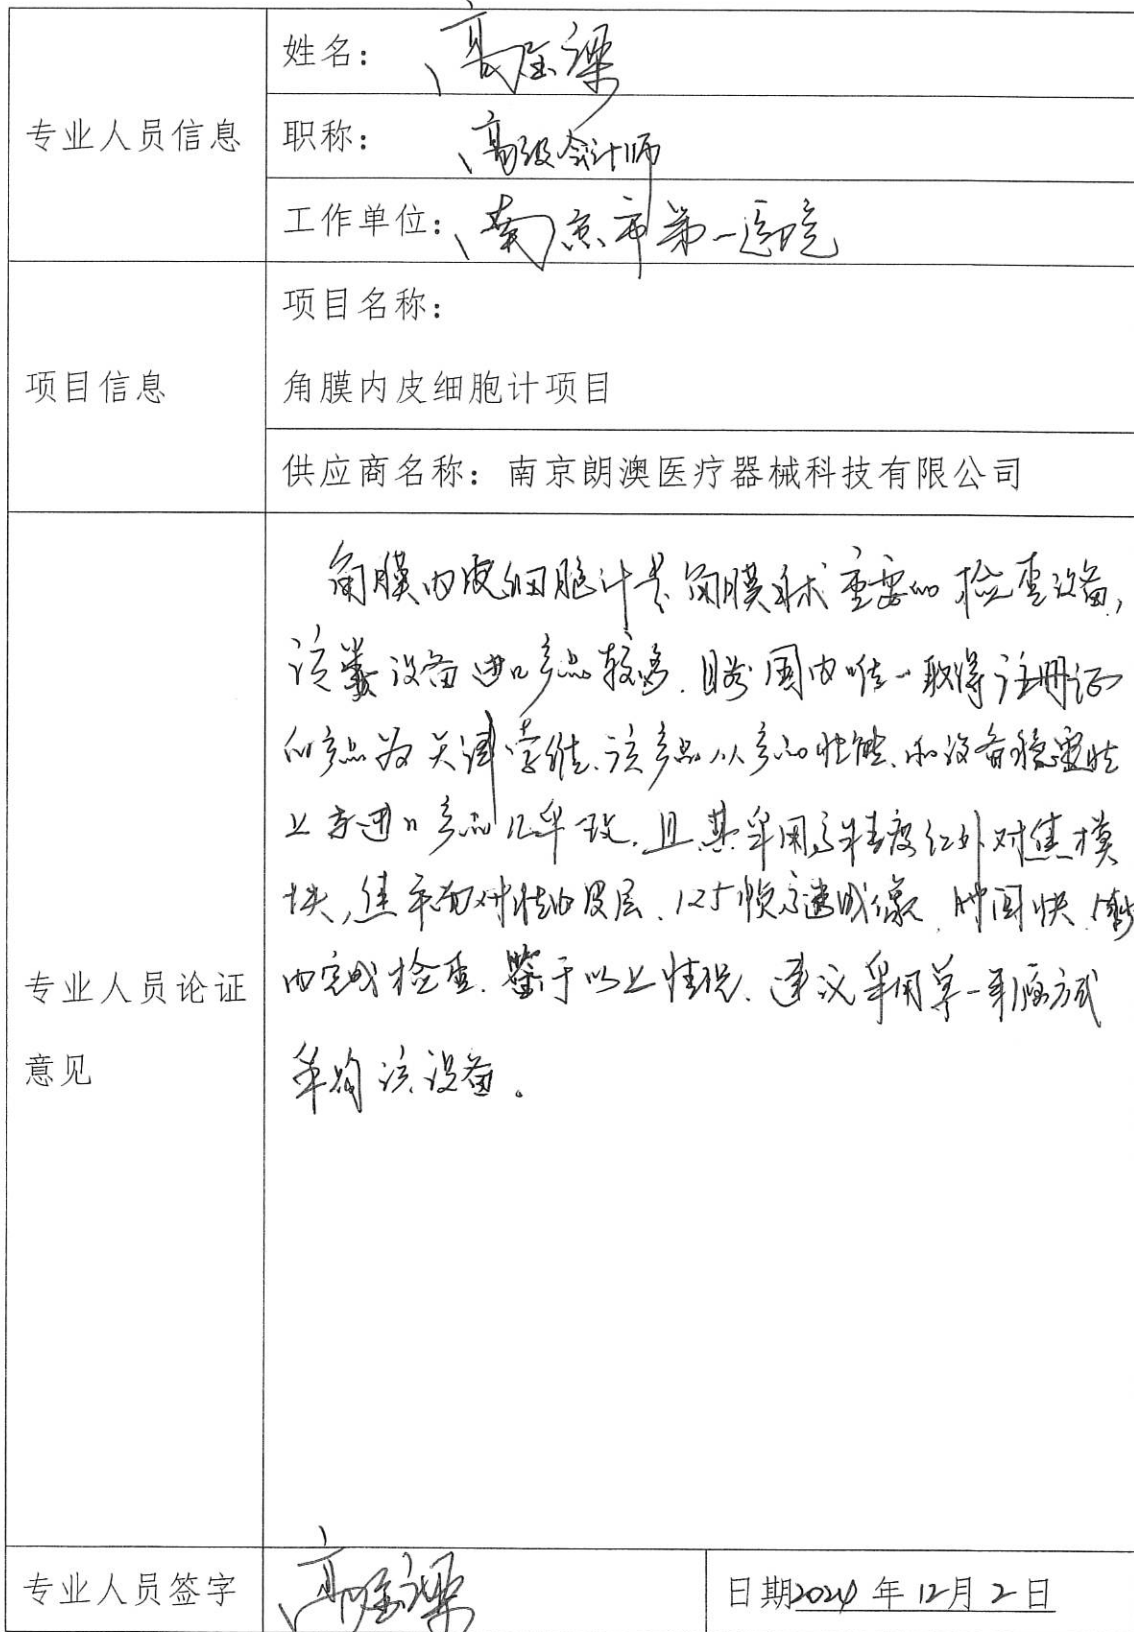 专业人员信息
姓名：高
职称：高级会计师
工作单位：南京市第一医院
项目信息
项目名称：
角膜内皮细胞计项目
供应商名称：南京朗澳医疗器械科技有限公司
专业人员论证
意见
角膜内皮细胞计是角膜手术重要的检查设备，
该类设备进口产品较多，目前国内唯一取得注册证
的产品为天津索维，该产品从产品性能和设备稳定性
上与进口产品几乎一致，且其采用高精度红外对焦模
块，焦平面对准内皮层，125帧高速成像，时间快，
内完成检查。鉴于以上情况，建议采用单一来源方式
采购该设备。
专业人员签字
高
日期2024年12月2日